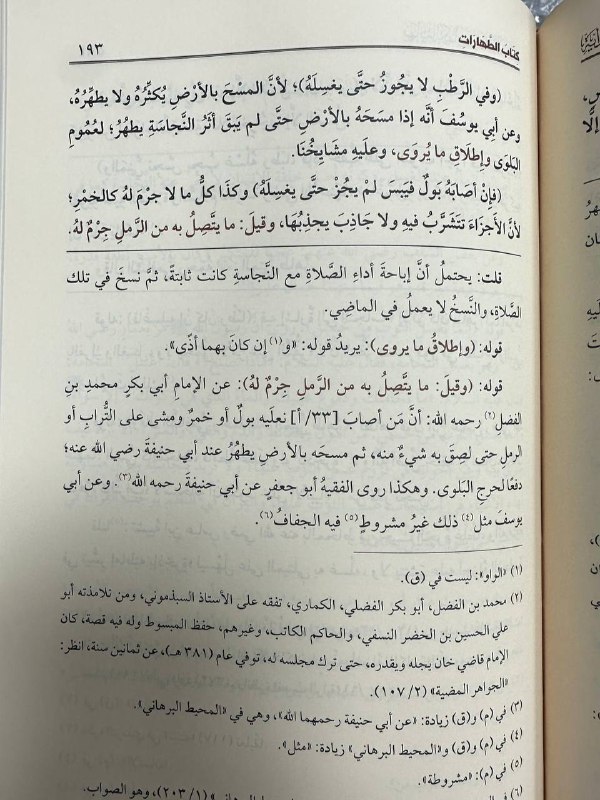 كتاب الطهارات
١٩٣
(وفي الرَّطْبِ لا يجوزُ حتَّى يغسِلَهُ)؛ لأنَّ المسْحَ بالأرْضِ يُكثِّرُهُ ولا يطهِّرُهُ،
وعن أبي يوسُفَ أنَّه إذا مسَحَهُ بالأرْضِ حتَّى لم يَبقَ أثَرُ النَّجاسَةِ يطهُرُ؛ لعُمومِ
البَلوَى وإطلاقِ ما يُروَى، وعلَيهِ مشايخُنَا.
(فإنْ أصَابَهُ بَولٌ فيَبسَ لمْ يجُزْ حتَّى يغسِلَهُ) وكذَا كلُّ ما لا جرْمَ لهُ كالخمْرِ؛
لأنَّ الأجزَاءَ تتَشَرَّبُ فيهِ ولا جَاذِبَ يجذِبُهَا، وقيلَ: ما يتَّصِلُ به من الرَّملِ جِرْمٌ لهُ.
قلت: يحتملُ أنَّ إباحةَ أداءِ الصَّلاةِ مع النَّجاسةِ كانت ثابتةً، ثمَّ نسخَ في تلك
الصَّلاةِ، والنَّسخُ لا يعملُ في الماضِي.
قوله: (وإطلاقُ ما يروى): يريدُ قوله: «و(١) إن كانَ بهما أذًى».
قوله: (وقيلَ: ما يتَّصِلُ به من الرملِ جِرْمٌ لهُ): عن الإمامِ أبي بكرٍ محمدِ بنِ
الفضلِ(٢) رحمه الله: أنَّ مَن أصابَ [٣٣/ أ] نعلَيه بولٌ أو خمرٌ ومشى على التُّرابِ أو
الرملِ حتى لصِقَ به شيءٌ منه، ثم مسحَه بالأرضِ يطهُرُ عند أبي حنيفةَ رضي الله عنه؛
دفعًا لحرجِ البَلوى. وهكذا روى الفقيهُ أبو جعفرٍ عن أبي حنيفةَ رحمه الله(٣). وعن أبي
يوسفَ مثل(٤) ذلك غيرُ مشروطٍ(٥) فيه الجفافُ(٦).
(١) «الواو»: ليست في (ق).
(٢) محمد بن الفضل، أبو بكر الفضلي، الكماري، تفقه على الأستاذ السبذموني، ومن تلامذته أبو
علي الحسين بن الخضر النسفي، والحاكم الكاتب، وغيرهم، حفظ المبسوط وله فيه قصة، كان
الإمام قاضي خان يجله ويقدره، حتى ترك مجلسه له، توفي عام (٣٨١ هـ)، عن ثمانين سنة، انظر:
«الجواهر المضية» (٢/ ١٠٧).
(٣) في (م) و(ق) زيادة: «عن أبي حنيفة رحمهما الله»، وهي في «المحيط البرهاني».
(٤) في (م) و(ق) و«المحيط البرهاني» زيادة: «مثل».
(٥) في (م): «مشروطة».
(١/ ٢٠٣)، وهو الصواب.